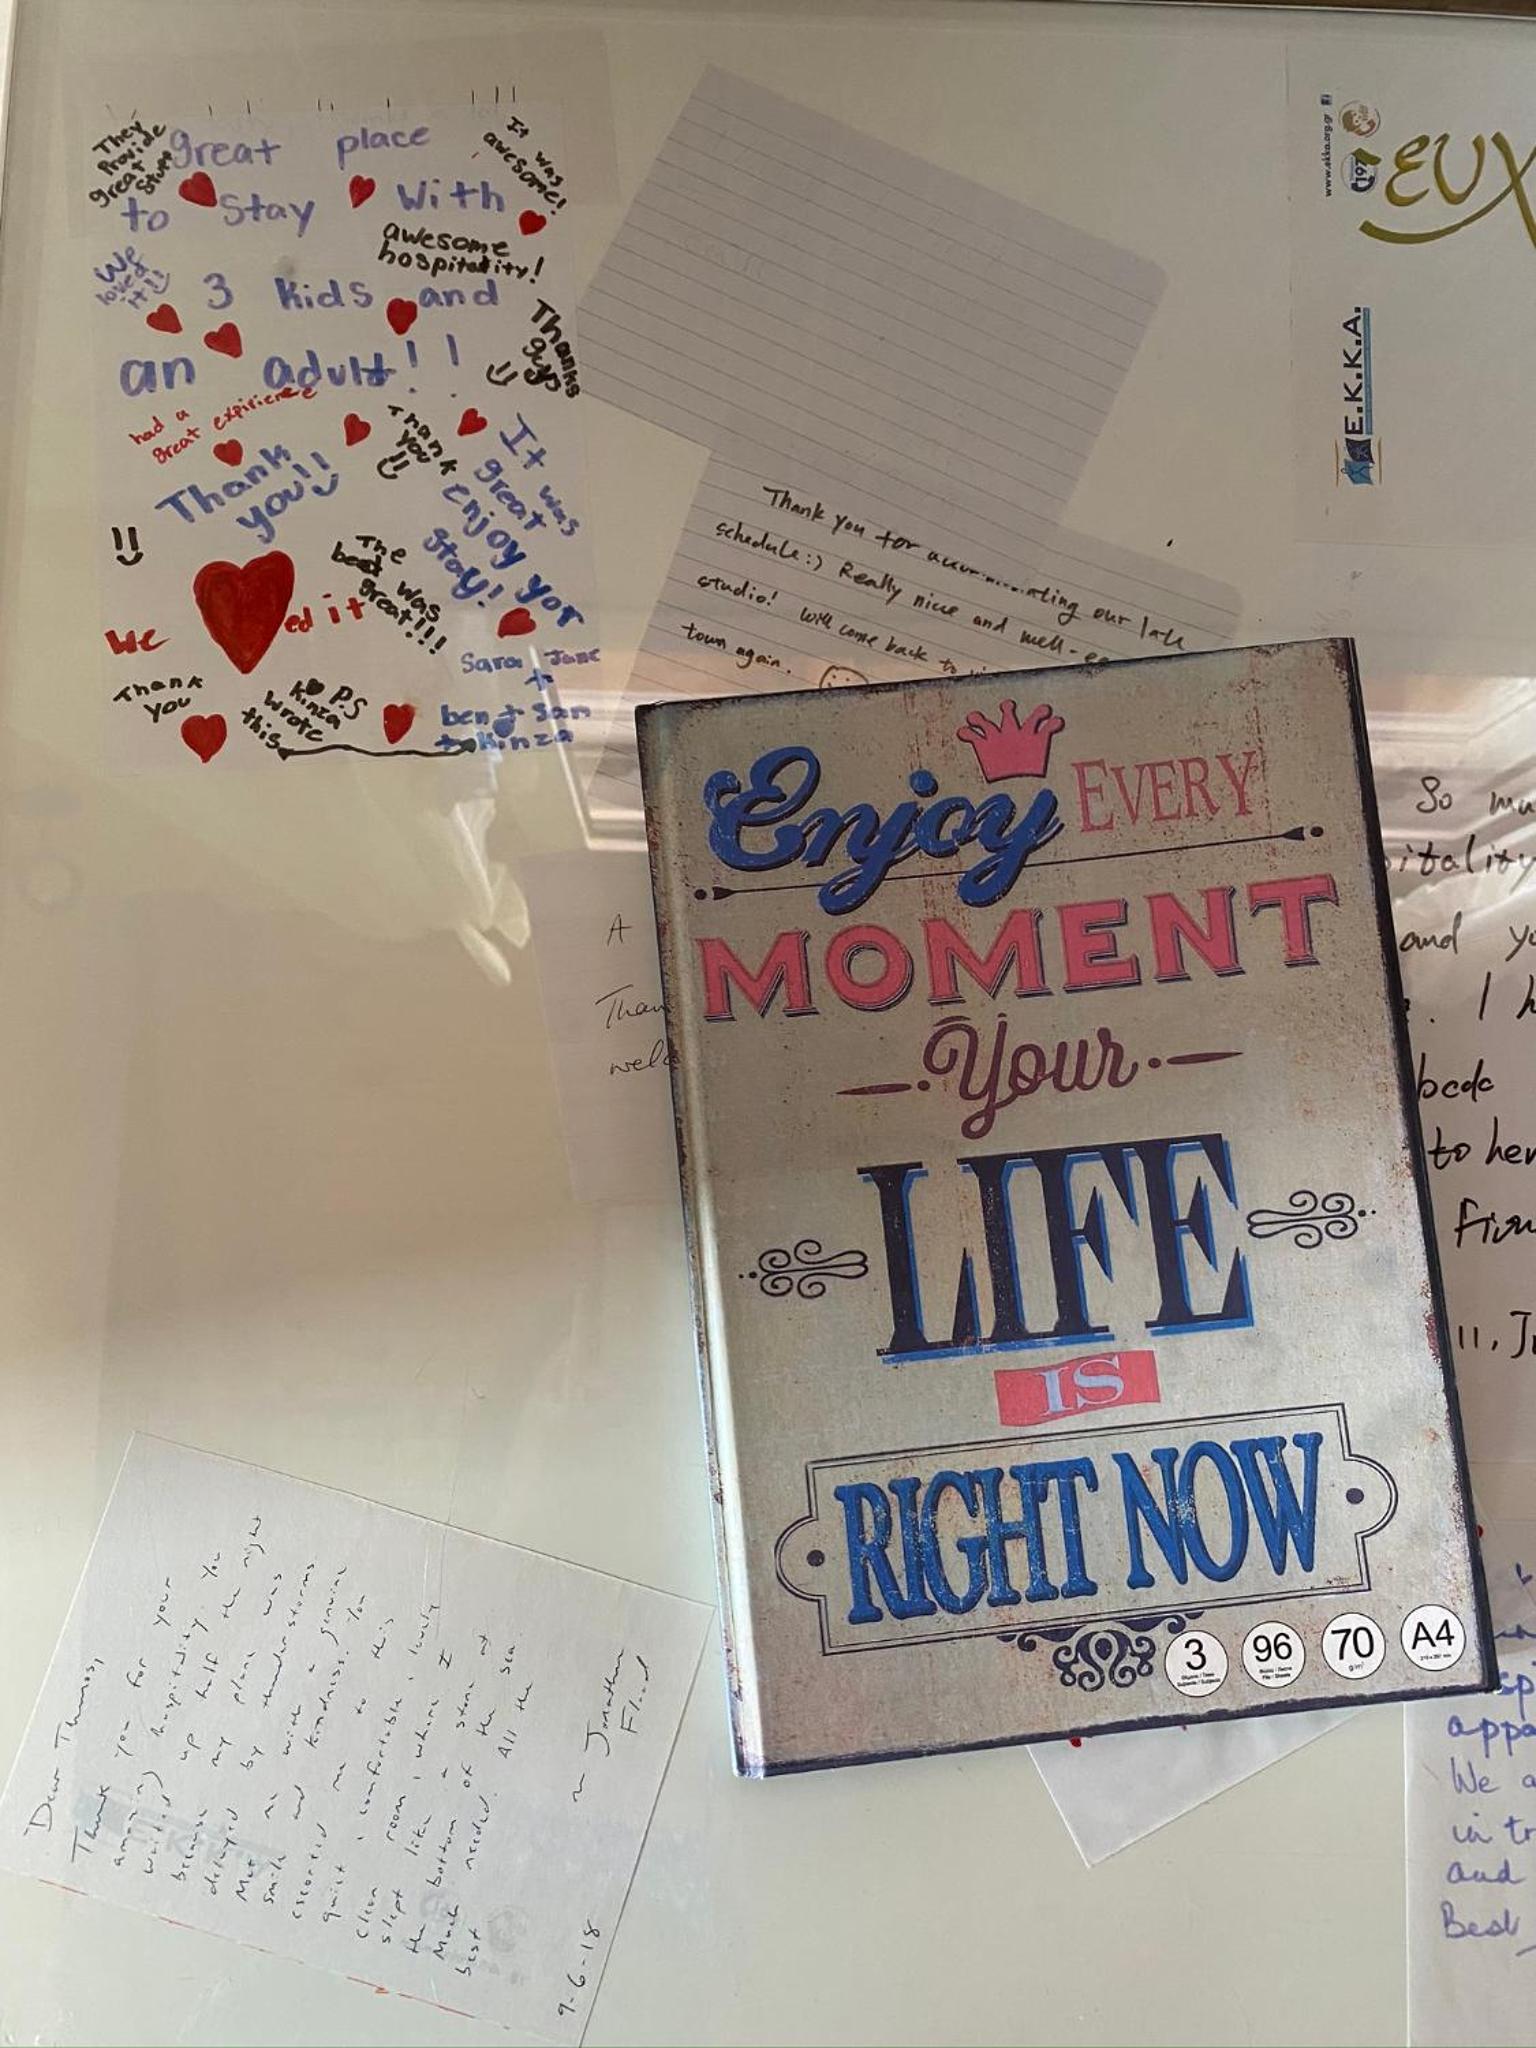 They
Provide
great
stuff
great place
It was
awesome!
to stay with
awesome
hospitality!
We
loved
it!!
3 kids and
an adult!!
Thanks
guys
had a
great expirience
Thank
you!!
Thank
you
It was
great
enjoy yor
stay!
The
bed was
great!!!
We ed it
Sara + Jane
+
ben + Sam
+ Kinza
Thank
you
P.S
Kinza
wrote
this
Thank you for accommodating our late
schedule:) Really nice and well-
studio! Will come back to
town again.
www.ekka.org.gr
197
EUX
E.K.K.A.
A
So
and
. I
to her
11,
We
and
Best,
Enjoy EVERY
MOMENT
Your
LIFE
IS
RIGHT NOW
3
96
70
g/m²
A4
Dear Thomas,
Thank you for your
amazing hospitality. You
waited up half the night
because my plane was
delayed by thunderstorms
Met me with a genuine
smile and kindness. You
escorted me to this
quiet, comfortable, lovely
clean room, where I
slept like a stone at
the bottom of the sea.
Much needed. All the
best
~ Jonathan
Flood
9-6-18